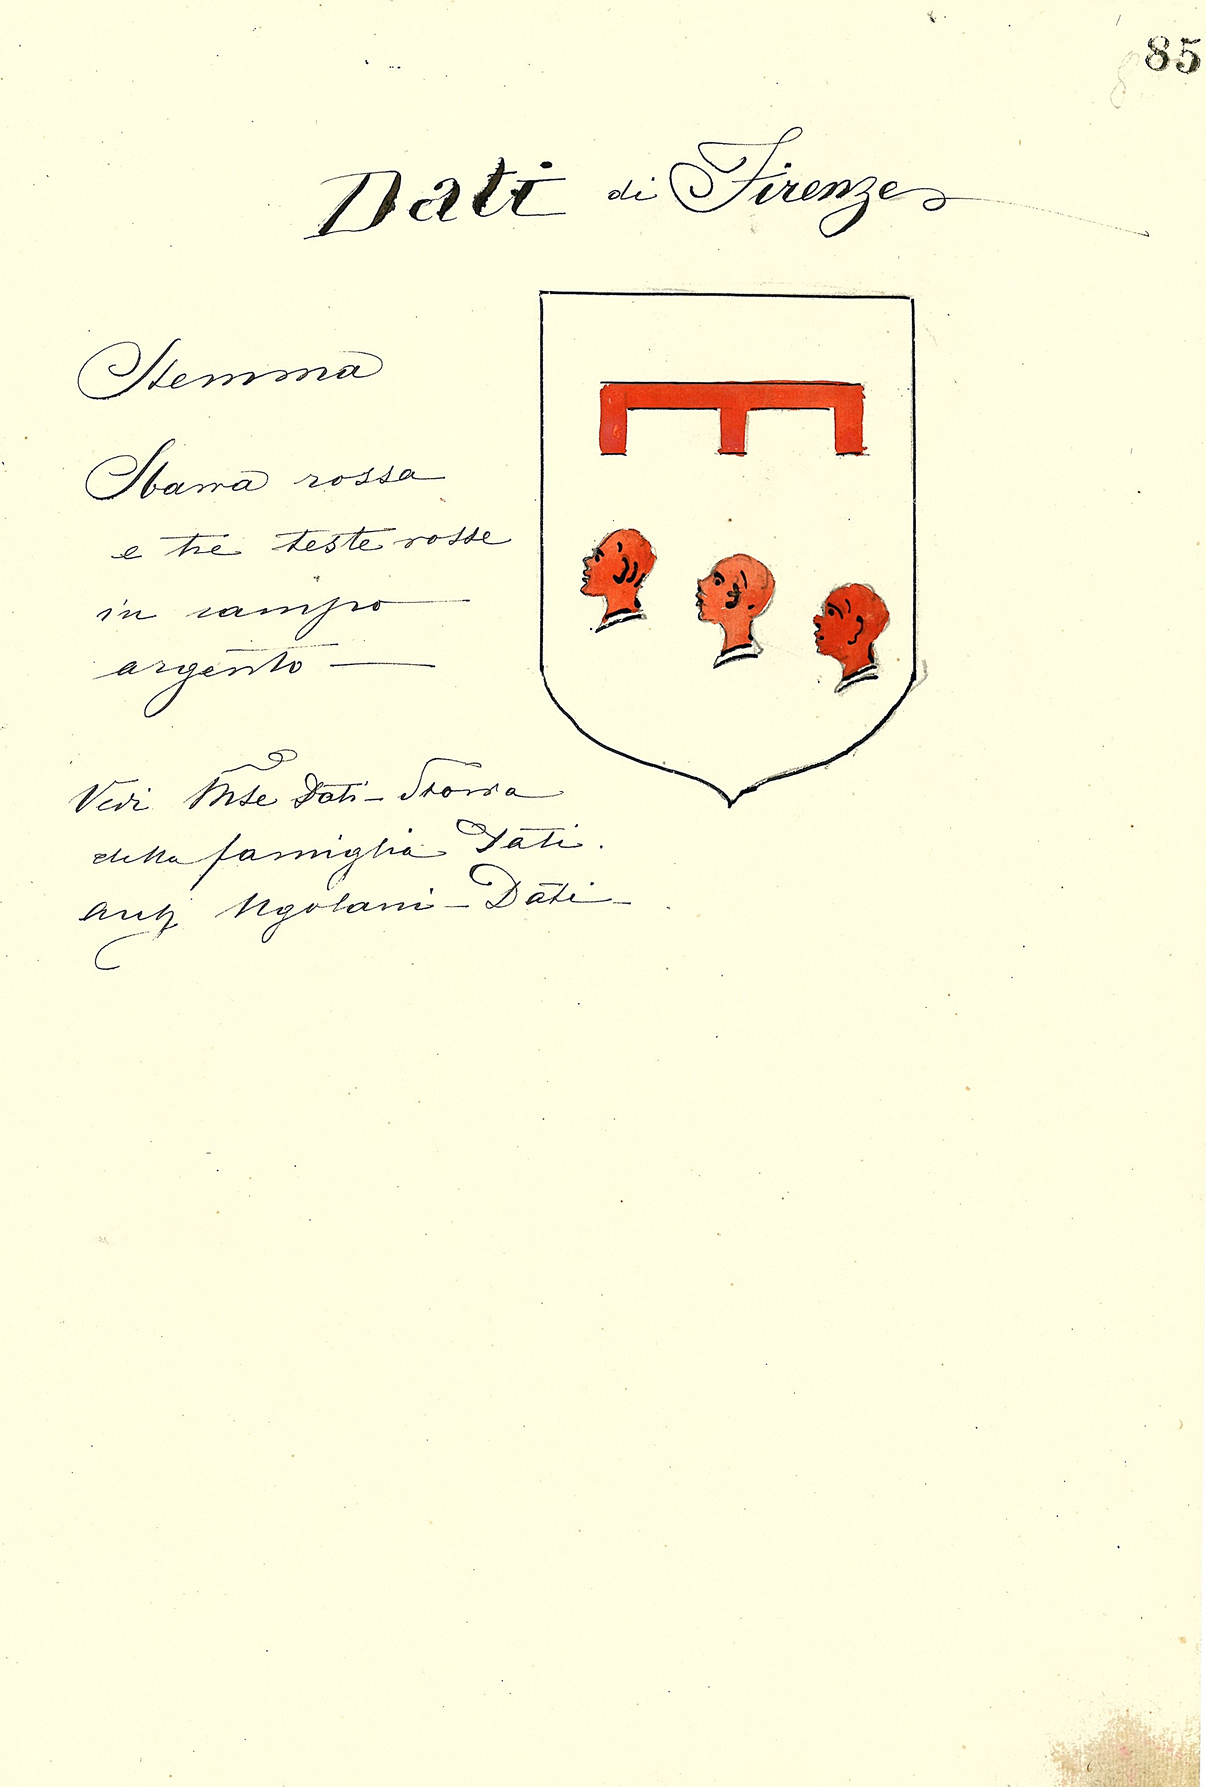 85
8
Dati di Firenze
Stemma
Sbarra rossa
e tre teste rosse
in campo
argento
Vedi Mse Dati - Storia
della famiglia Dati.
Ugolani - Dati -